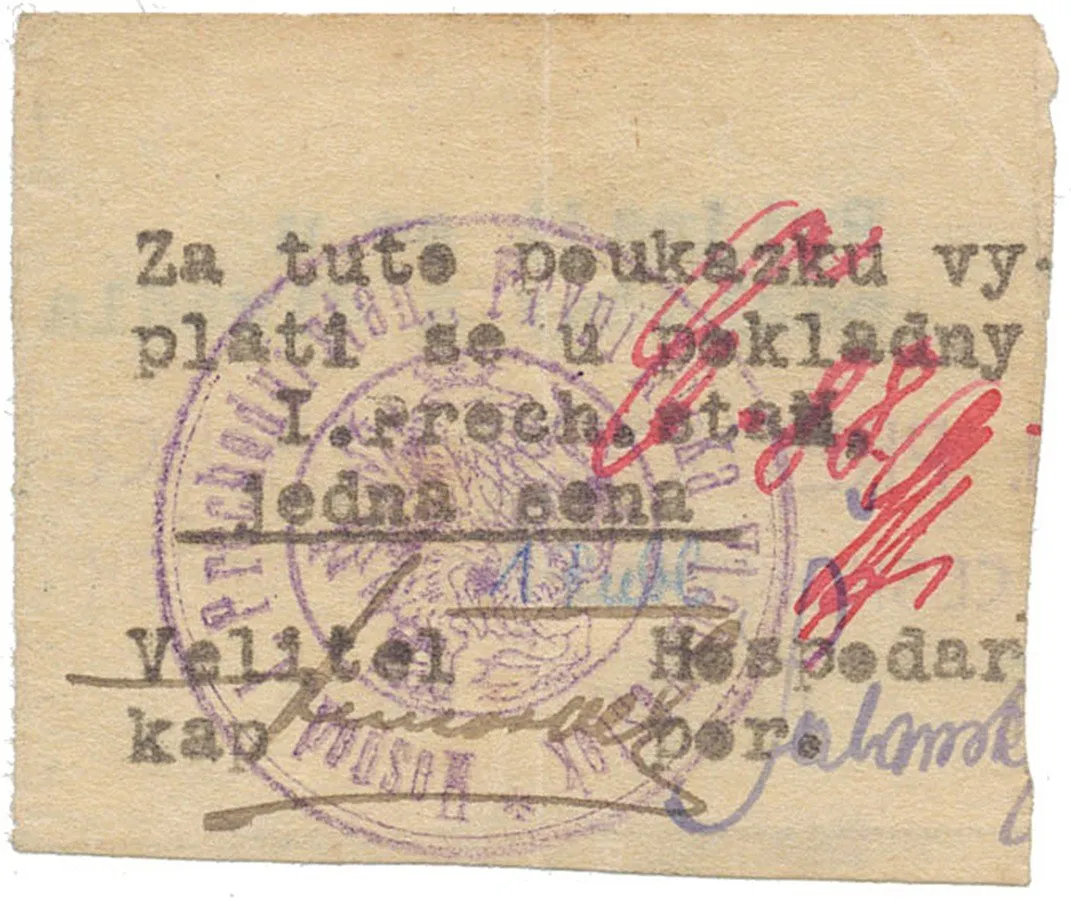 Za tuto poukazku vy-
plati se u pokladny
I.Proch.stan.
jedna sena
1 rubl
Velitel Hospodar
kap por.